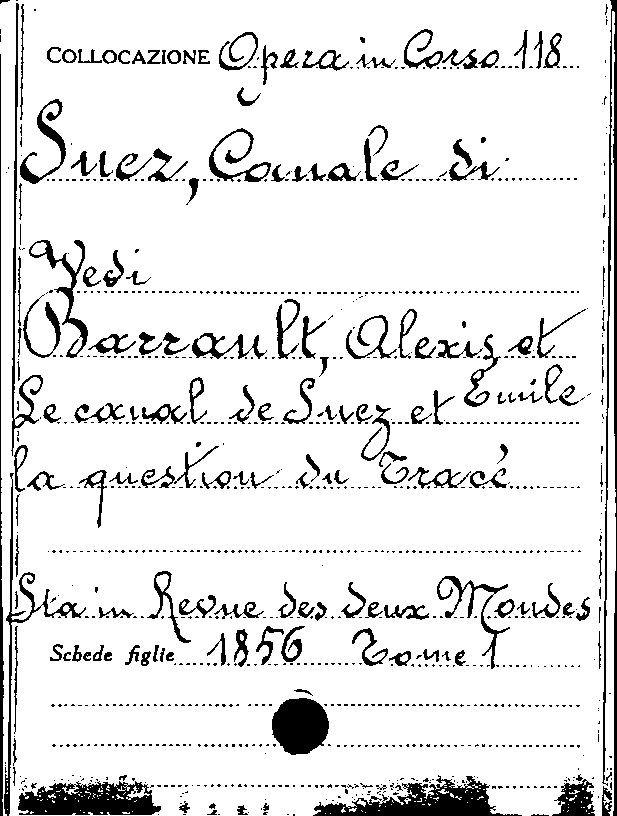 COLLOCAZIONE Opera in Corso 118
Suez, Canale di
Vedi
Barrault, Alexis et
Le canal de Suez et Emile
la question du Tracé
Sta in Revue des deux Mondes
Schede figlie 1856 Tome 1